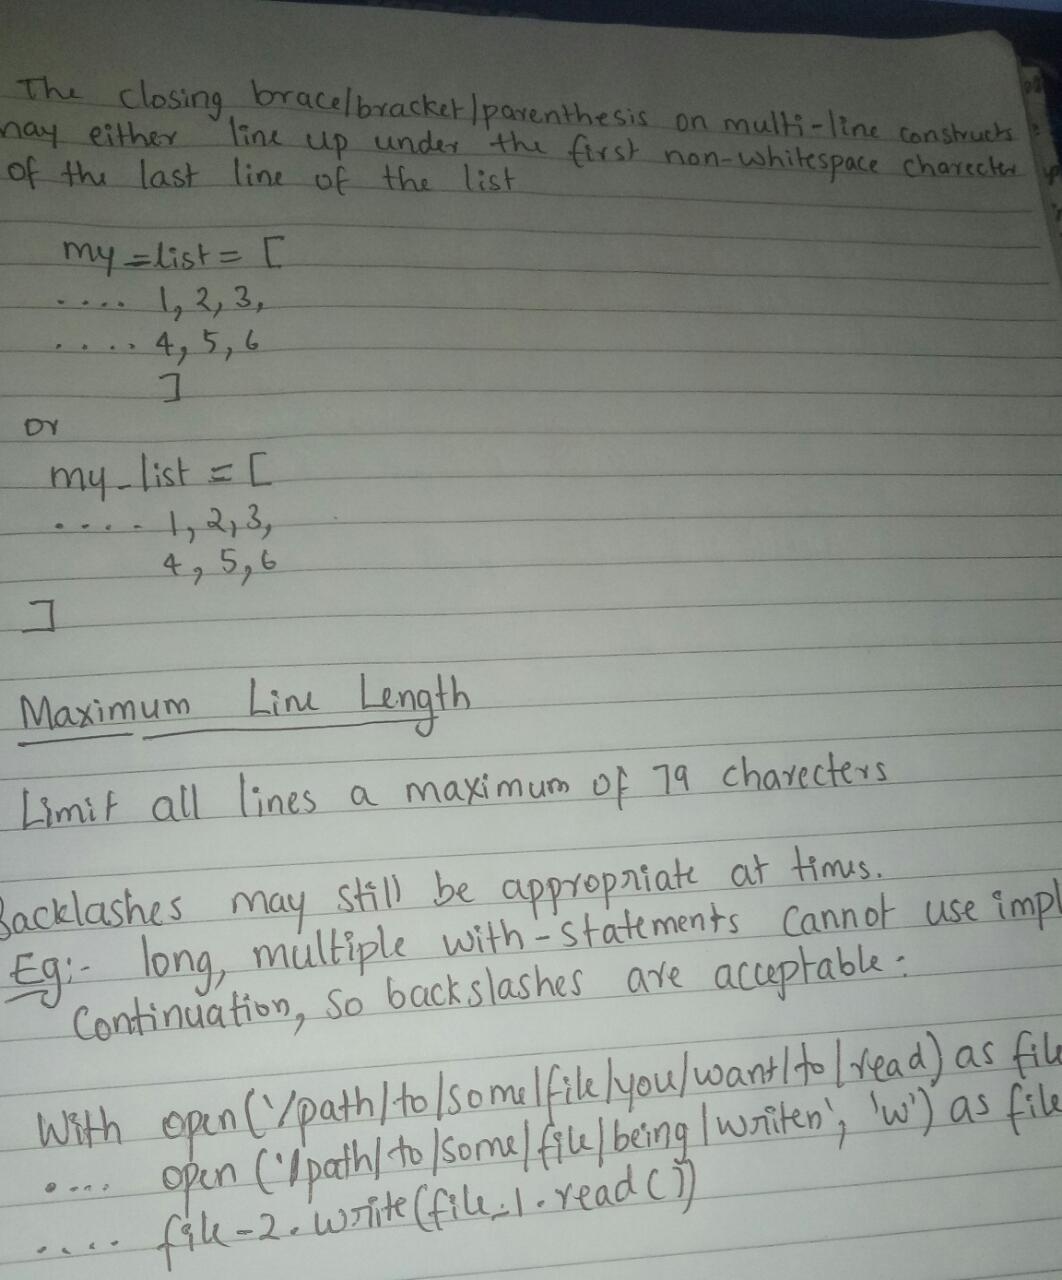 The closing brace/bracket/parenthesis on multi-line constructs
may either line up under the first non-whitespace charecter
of the last line of the list
my=list = [
.... 1, 2, 3,
.... 4, 5, 6
]
or
my_list = [
.... 1, 2, 3,
4, 5, 6
]
Maximum Line Length
Limit all lines a maximum of 79 charecters
Backlashes may still be appropriate at times.
Eg:- long, multiple with-statements cannot use impl
Continuation, so backslashes are acceptable:
With open('/path/to/some/file/you/want/to/read) as file
.... open ('/path/to/some/file/being/writen', 'w') as file
.... file-2.write(file_1.read())